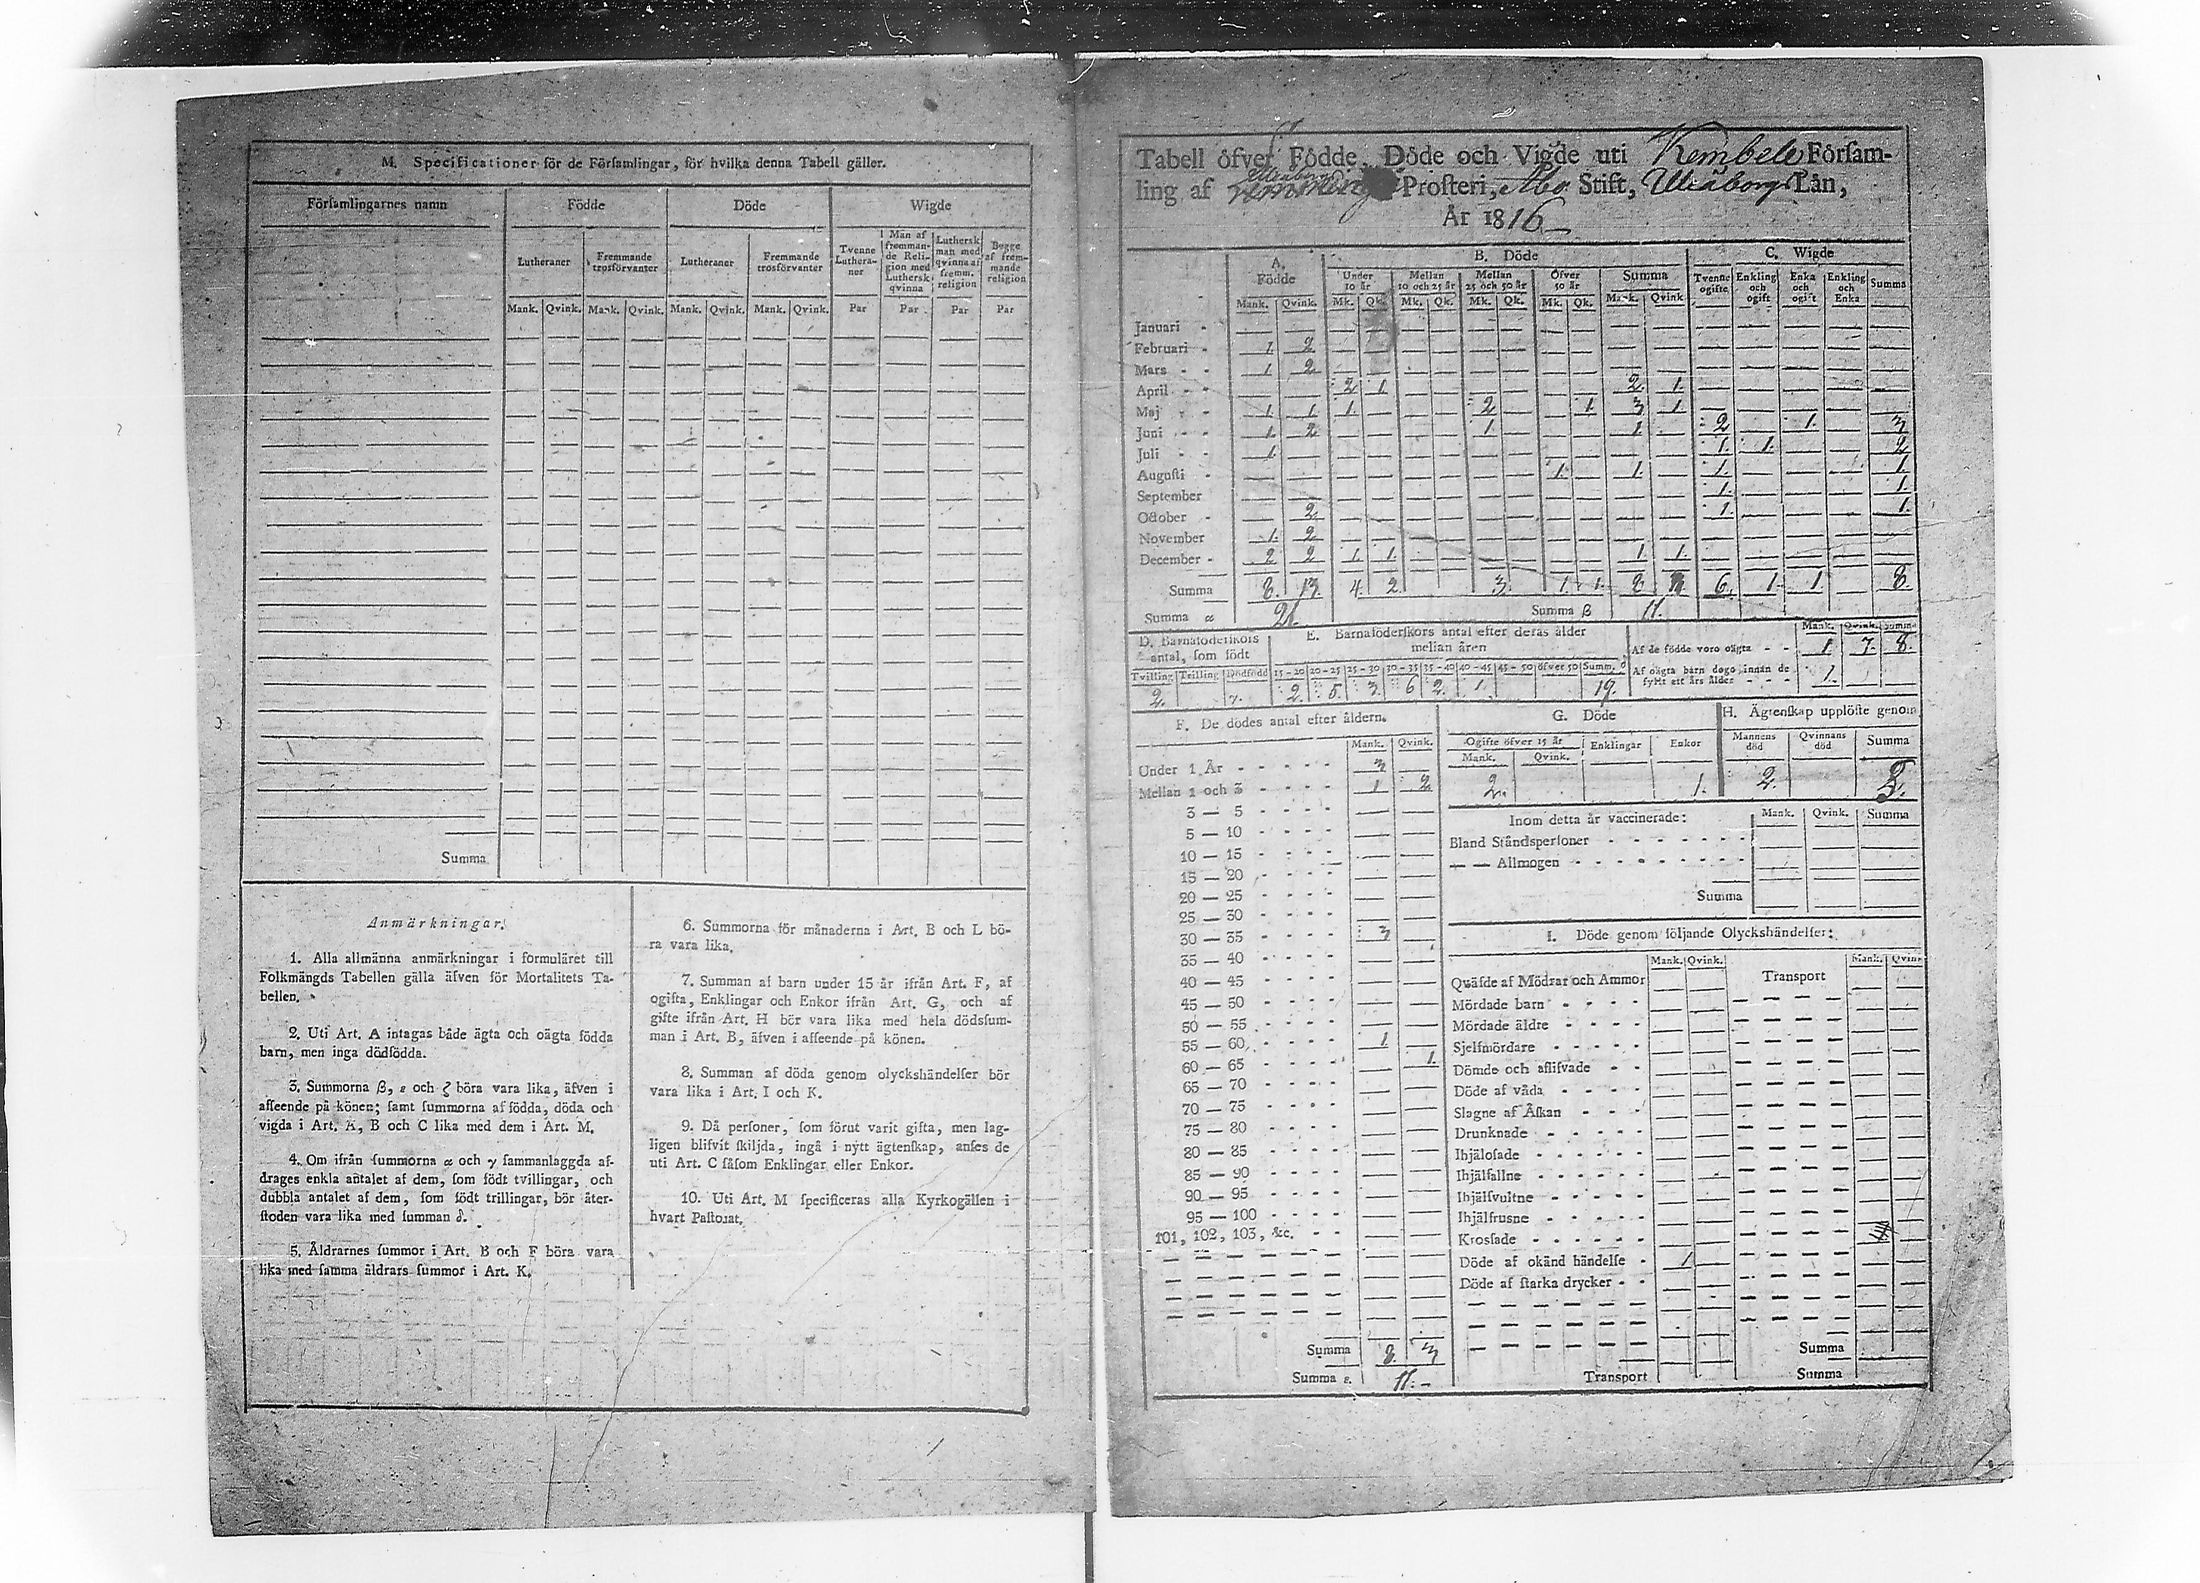 M. Specificationer för de Förſamlingar, för hvilka denna Tabell gäller.
Förſamlingarnes namn
Födde
Döde
Wigde
Lutheraner
Fremmande trosförvanter
Lutheraner
Fremmande trosförvanter
Tvenne Luthera-ner
Män af fremman-de Reli-gion med Lutherſk qvinna
Lutherſk man med qvinna af fremm. religion
Begge af frem-mande religion
Mank. Qvink. Mank. Qvink. Mank. Qvink. Mank. Qvink. Par Par Par Par
Summa
Anmärkningar.
1. Alla allmänna anmärkningar i formuläret till
Folkmängds Tabellen gälla äfven för Mortalitets Ta-
bellen.
2. Uti Art. A intagas både ägta och oägta födda
barn, men inga dödfödda.
3. Summorna β, ε och ζ böra vara lika, äfven i
afſeende på könen; ſamt ſummorna af födda, döda och
vigda i Art. A, B och C lika med dem i Art. M.
4. Om ifrån ſummorna α och γ ſammanlaggda af-
drages enkla antalet af dem, ſom födt tvillingar, och
dubbla antalet af dem, ſom födt trillingar, bör åter-
ſtoden vara lika med ſumman δ.
5. Åldrarnes ſummor i Art. B och F böra vara
lika med ſamma åldrars ſummor i Art. K.
6. Summorna för månaderna i Art. B och L bö-
ra vara lika.
7. Summan af barn under 15 år ifrån Art. F, af
ogifta, Enklingar och Enkor ifrån Art. G, och af
gifte ifrån Art. H bör vara lika med hela dödsſum-
man i Art. B, äfven i afſeende på könen.
8. Summan af döda genom olyckshändelſer bör
vara lika i Art. I och K.
9. Då perſoner, ſom förut varit gifta, men lag-
ligen blifvit ſkiljda, ingå i nytt ägtenſkap, anſes de
uti Art. C ſåſom Enklingar eller Enkor.
10. Uti Art. M ſpecificeras alla Kyrkogällen i
hvart Paſtorat.
Tabell öfver Födde, Döde och Vigde uti Kembele Förſam-
ling af Uleåborgs Proſteri, Åbo Stift, Uleåborgs Län,
År 1816
A. Födde
B. Döde
C. Wigde
Under 10 år
Mellan 10 och 25 år
Mellan 25 och 50 år
Öfver 50 år
Summa
Tvenne ogifte
Enkling och ogift
Enka och ogift
Enkling och Enka
Summa
Mank. Qvink. Mk. Qk. Mk. Qk. Mk. Qk. Mk. Qk. Mank. Qvink
Januari
Februari 1. 2
Mars 1. 2
April 2 1. 2. 1.
Maj 1 1 1. 2 1. 3 1
Juni 1. 2 1 1. 2 1. 3
Juli 1. 1. 1. 2
Auguſti 1. 1. 1. 1.
September 1. 1.
October 2 1. 1.
November 1. 2
December 2 2 1 1. 1 1.
Summa 8. 13. 4. 2. 3. 1. 1. 8 6. 1. 1. 8.
Summa α 21. Summa β 11.
D. Barnaföderſkors antal, ſom födt
Tvilling Trilling Dödfödd
2.
E. Barnaföderſkors antal efter deras ålder
mellan åren
15-20 20-25 25-30 30-35 35-40 40-45 45-50 öfver 50 Summ. δ
2. 5. 3. 6 2. 1. 19.
Mank. Qvink. Summa
Af de födde voro oägta 1 7. 8.
Af oägta barn dogo innan de
fyllt ett års ålder 1.
F. De dödes antal efter åldern.
Mank. Qvink.
Under 1 År 3
Mellan 1 och 3 1 2
3 — 5
5 — 10
10 — 15
15 — 20
20 — 25
25 — 30
30 — 35 3
35 — 40
40 — 45
45 — 50
50 — 55
55 — 60 1
60 — 65 1.
65 — 70
70 — 75
75 — 80
80 — 85
85 — 90
90 — 95
95 — 100
101, 102, 103, &c.
Summa 8. 3
Summa ε. 11.
G. Döde
Ogifte öfver 15 år Enklingar Enkor
Mank. Qvink.
2. 1.
H. Ägtenſkap upplöſte genom
Mannens död Qvinnans död Summa
2.
Inom detta år vaccinerade: Mank. Qvink. Summa
Bland Ståndsperſoner
— — Allmogen
Summa
I. Döde genom följande Olyckshändelſer:
Mank. Qvink. Transport Mank. Qvink
Quäfde af Mödrar och Ammor
Mördade barn
Mördade äldre
Sjelfmördare
Dömde och aflifvade
Döde af våda
Slagne af Åſkan
Drunknade
Ihjäloſade
Ihjälfallne
Ihjälſvultne
Ihjälfrusne
Kroſſade
Döde af okänd händelſe 1
Döde af ſtarka drycker
Summa
Transport Summa